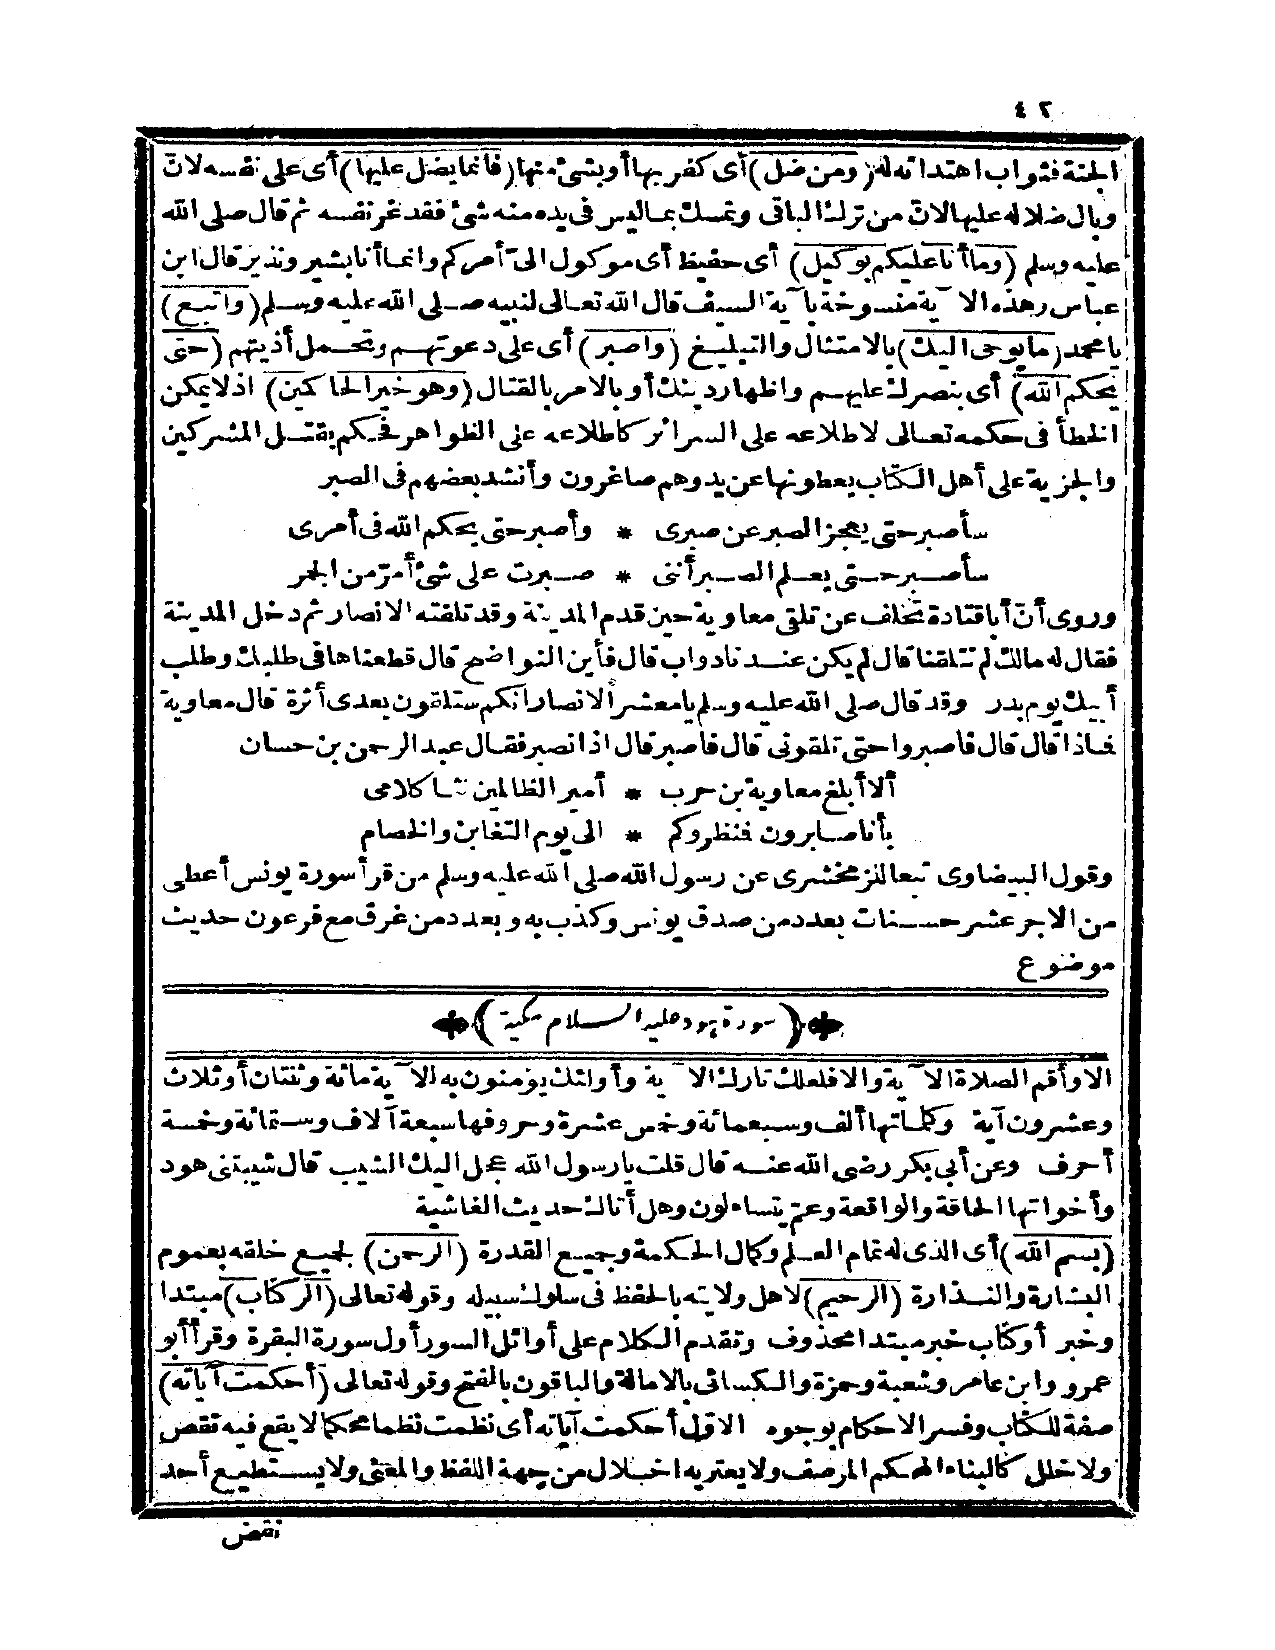 ٤٢
الجنة فثواب اهتدائه له (ومن ضل) أى كفر بها أو بشئ منها (فانما يضل عليها) أى على نفسه لانّ
وبال ضلاله عليها لانّ من ترك الباقى وتمسك بما ليس فى يده منه شئ فقد غر نفسه ثم قال صلى الله
عليه وسلم (وما أنا عليكم بوكيل) أى حفيظ أى موكول الىّ أمركم وانما أنا بشير ونذير قال ابن
عباس وهذه الآية منسوخة بآية السيف قال الله تعالى لنبيه صلى الله عليه وسلم (واتبع)
يا محمد (ما يوحى اليك) بالامتثال والتبليغ (واصبر) أى على دعوتهم وتحمل أذيتهم (حتى
يحكم الله) أى بنصرك عليهم واظهار دينك أو بالامر بالقتال (وهو خير الحاكمين) اذلا يمكن
الخطأ فى حكمه تعالى لاطلاعه على السرائر كاطلاعه على الظواهر فحكم بقتل المشركين
والجزية على أهل الكتاب يعطونها عن يد وهم صاغرون وأنشد بعضهم فى الصبر
سأصبر حتى يعجز الصبر عن صبرى * وأصبر حتى يحكم الله فى أمرى
سأصبر حتى يعلم الصبر أننى * صبرت على شئ أمرّ من الجمر
وروى أنّ أبا قتادة تخلف عن تلقى معاوية حين قدم المدينة وقد تلقته الانصار ثم دخل المدينة
فقال له مالك لم تتلقنا قال لم يكن عندنا دواب قال فأين النواضح قال قطعناها فى طلبك وطلب
أبيك يوم بدر وقد قال صلى الله عليه وسلم يا معشر الانصار انكم ستلقون بعدى أثرة قال معاوية
فماذا قال قال فاصبروا حتى تلقونى قال فاصبر قال اذا نصبر فقال عبد الرحمن بن حسان
ألا أبلغ معاوية بن حرب * أمير الظالمين نثا كلامى
بأنا صابرون فنظروكم * الى يوم التغابن والخصام
وقول البيضاوى تبعا للزمخشرى عن رسول الله صلى الله عليه وسلم من قرأ سورة يونس أعطى
من الاجر عشر حسنات بعدد من صدق يونس وكذب به وبعدد من غرق مع فرعون حديث
موضوع
(سورة هود عليه السلام مكية)
الا وأقم الصلاة الآية والا فلعلك تارك الآية وأولئك يؤمنون به الآية مائة وثنتان أو ثلاث
وعشرون آية وكلماتها ألف وسبعمائة وخمس عشرة وحروفها سبعة آلاف وستمائة وخمسة
أحرف وعن أبى بكر رضى الله عنه قال قلت يا رسول الله عجل اليك الشيب قال شيبتنى هود
وأخواتها الحاقة والواقعة وعم يتساءلون وهل أتاك حديث الغاشية
(بسم الله) أى الذى له تمام العلم وكمال الحكمة وجميع القدرة (الرحمن) لجميع خلقه بعموم
البشارة والنذارة (الرحيم) لاهل ولايته بالحفظ فى سلوك سبيله وقوله تعالى (الر كتاب) مبتدا
وخبر أو كتاب خبر مبتدا محذوف وتقدم الكلام على أوائل السور أول سورة البقرة وقرأ أبو
عمرو وابن عامر وشعبة وحمزة والكسائى بالامالة والباقون بالفتح وقوله تعالى (أحكمت آياته)
صفة للكتاب وفسر الاحكام بوجوه الاول أحكمت آياته أى نظمت نظما محكما لا يقع فيه نقص
ولا خلل كالبناء المحكم المرصف ولا يعتريه اخلال من جهة اللفظ والمعنى ولا يستطيع أحد
نقض